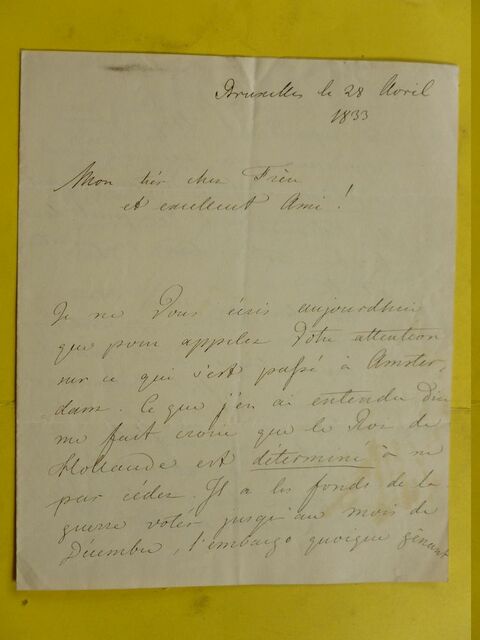 Bruxelles le 28 Avril
1833
Mon très cher Frère
et excellent Ami !
Je ne Vous écris aujourdhui
que pour appeler Votre attention
sur ce qui s'est passé à Amster-
dam. Ce que j'en ai entendu dire
me fait croire que le Roi de
Hollande est déterminé à ne
pas céder. Il a les fonds de la
guerre votés jusqu'au mois de
Décembre, l'embargo quoique gênant